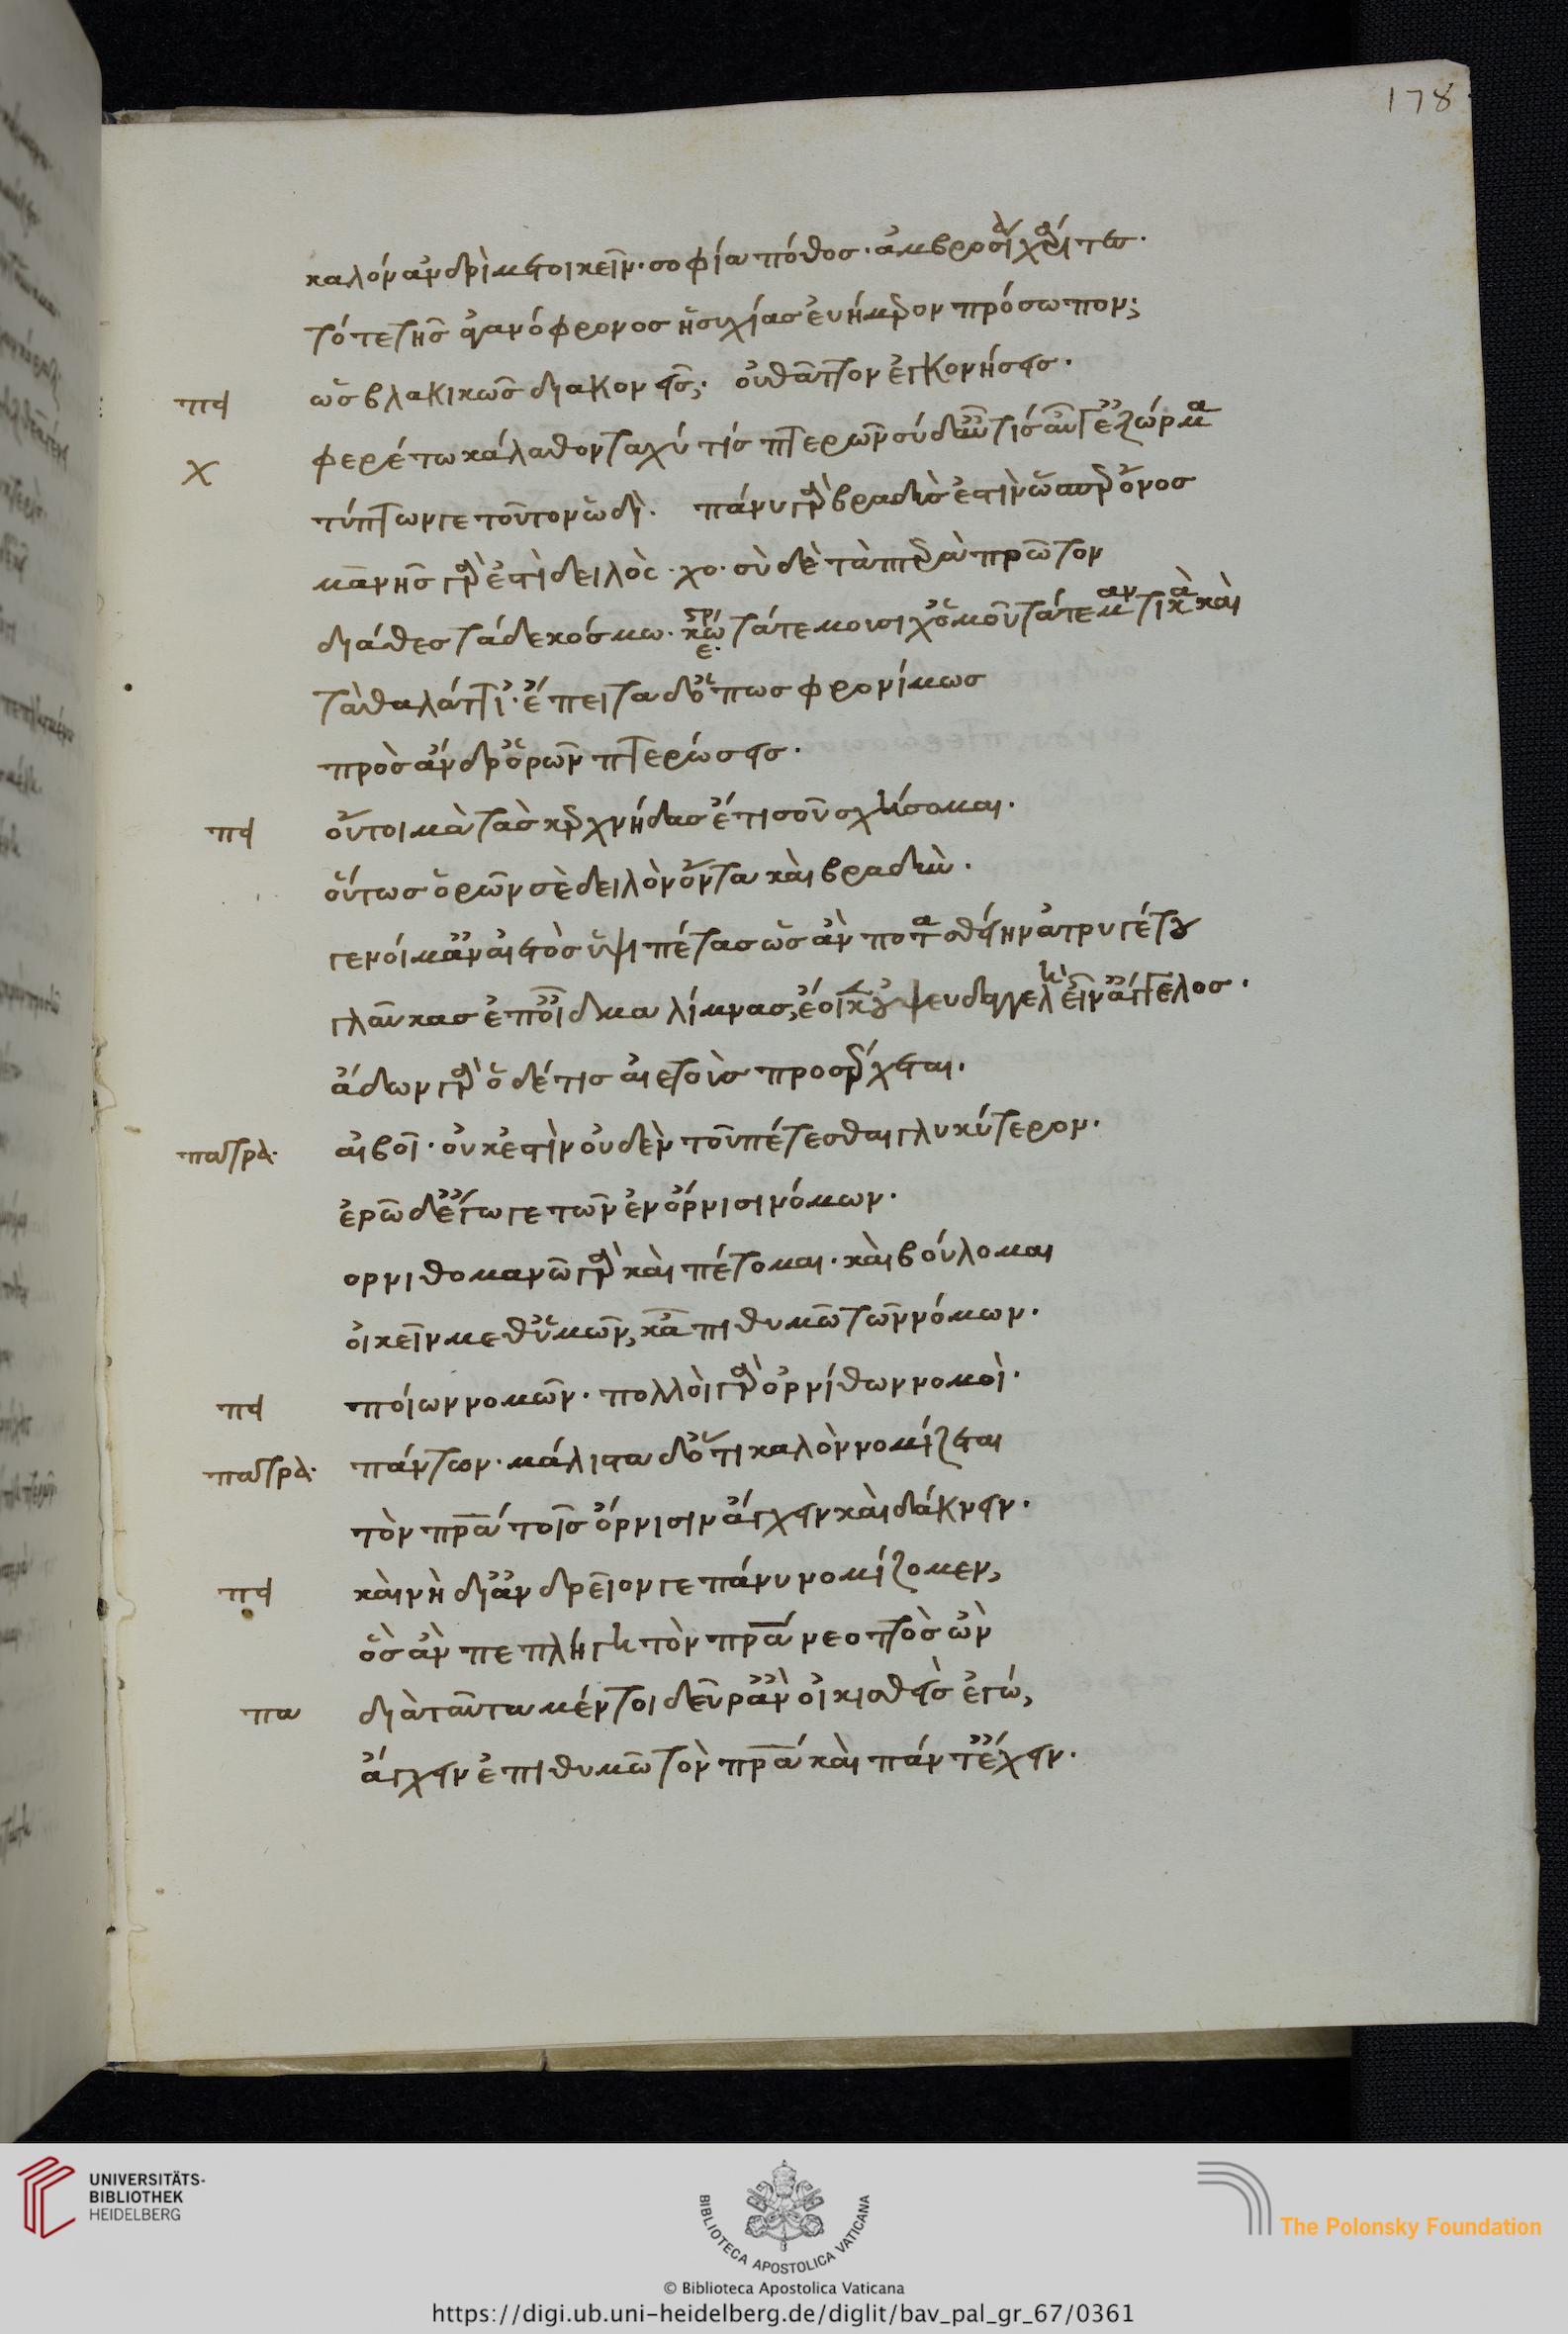 178
καλὸν ἀνδρὶ μετοικεῖν· σοφία πόθος· ἀμβροσίαι χάριτες·
τό τε τῆς ἀγανόφρονος ἡσυχίας εὐήμερον πρόσωπον;
πει ὡς βλακικῶς διακονεῖς; οὐ θᾶττον ἐγκονήσεις·
χ φερέτω κάλαθον ταχύ τις πτερῶν σὺ δ' αὖτις αὖ γ' ἐξώρμα
τύπτων γε τοῦτον ὡδί. πάνυ γὰρ βραδύς ἐστιν ὥσπερ ὄνος
μανῆς γὰρ ἐστὶ δειλὸς· χο· σὺ δὲ τὰ πτερὰ πρῶτον
διάθες τάδε κόσμω· τά τε μουσίχ' ὁμοῦ τά τε μαντικὰ καὶ
τὰ θαλάττι'· ἔπειτα δ' ὅπως φρονίμως
πρὸς ἄνδρ' ὁρῶν πτερώσεις·
πει οὔτοι μὰ τὰς κερχνήδας ἔτι σοῦ σχήσομαι·
οὕτως ὁρῶν σὲ δειλὸν ὄντα καὶ βραδύν·
γενοίμαν αἰετὸς ὑψιπέτας ὡς ἂν ποταθείην ἀτρυγέτου
γλαύκας ἐπ' οἶδμα λίμνας, ἔοικεν οὐ ψευδαγγελὴς εἶν' ἄγγελος·
ἄδων γὰρ ὅδέ τις αἰετοὺς προσέρχεται·
πατρα· αἰβοῖ· οὐκ ἐστὶν οὐδὲν τοῦ πέτεσθαι γλυκύτερον·
ἐρῶ δ' ἔγωγε τῶν ἐν ὄρνισι νόμων·
ορνιθομανῶ γὰρ καὶ πέτομαι· καὶ βούλομαι
οἰκεῖν μεθ' ὑμῶν, κἀπιθυμῶ τῶν νόμων·
πει ποίων νόμων· πολλοὶ γὰρ ὀρνίθων νόμοι·
πατρα· πάντων· μάλιστα δ' ὅτι καλὸν νομίζεται
τὸν πρα τοῖς ὄρνισιν ἄγχειν καὶ δάκνειν·
πει καὶ νὴ δί' ἀνδρεῖόν γε πάνυ νομίζομεν,
ὃς ἂν πεπλήγη τὸν πρα νεοττὸς ὢν
πα διὰ ταῦτα μέντοι δεῦρ' ἀνοικισθεὶς ἐγώ,
ἄγχειν ἐπιθυμῶ τὸν πρα καὶ πάντ' ἔχειν·
UNIVERSITÄTS-
BIBLIOTHEK
HEIDELBERG
BIBLIOTECA APOSTOLICA VATICANA
The Polonsky Foundation
© Biblioteca Apostolica Vaticana
https://digi.ub.uni-heidelberg.de/diglit/bav_pal_gr_67/0361